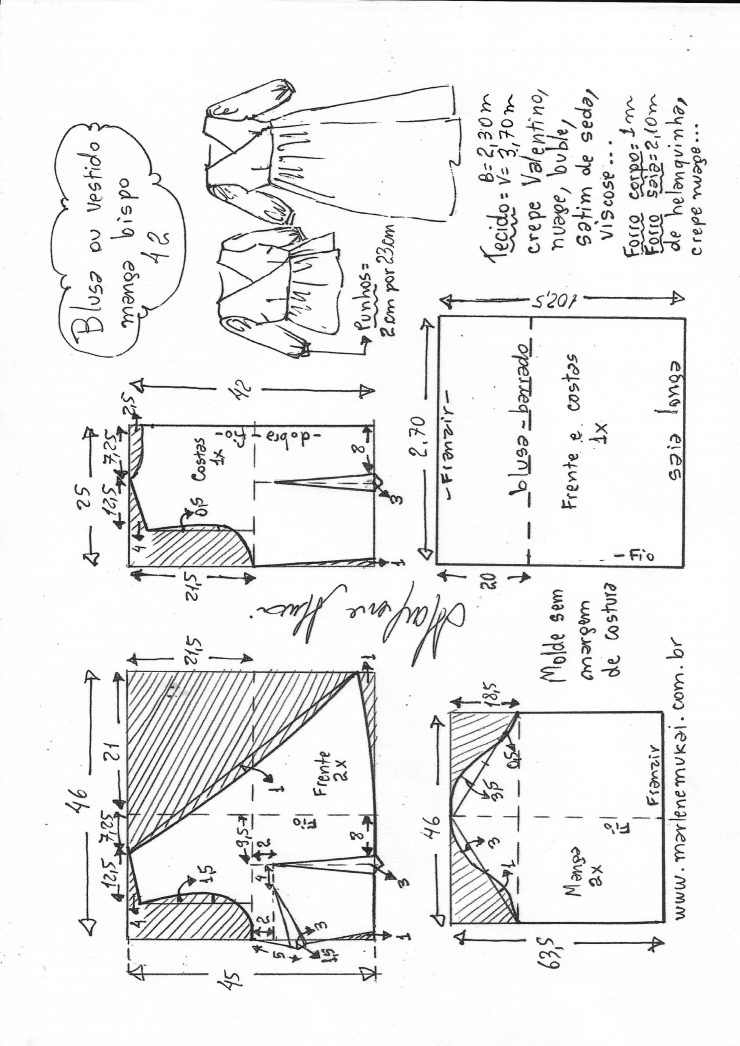 Blusa ou vestido
manga bispo
42
Punhos=
2cm por 23cm
Tecido= B=2,30m
V=3,70m
crepe Valentino,
nuage, buble,
satim de seda,
viscose...
Forro corpo=1m
Forro saia=2,10m
de helanquinha,
crepe nuage...
25
12,5
7,25
2,5
42
4
0,5
Costas
1x
-dobra-
-fio-
8
3
1
21,5
2,70
-Franzir-
102,5
blusa=barrado
Frente e costas
1x
saia longa
Fio
20
46
12,5
7,25
21
21,5
4
1,5
1
Frente
2x
Fio
9,5
2
4
8
3
2
4
5
3
1,5
1
1
45
Molde sem
margem
de costura
46
18,5
3
1
3,5
0,5
Fio
Manga
2x
Franzir
63,5
www.marlenemukai.com.br